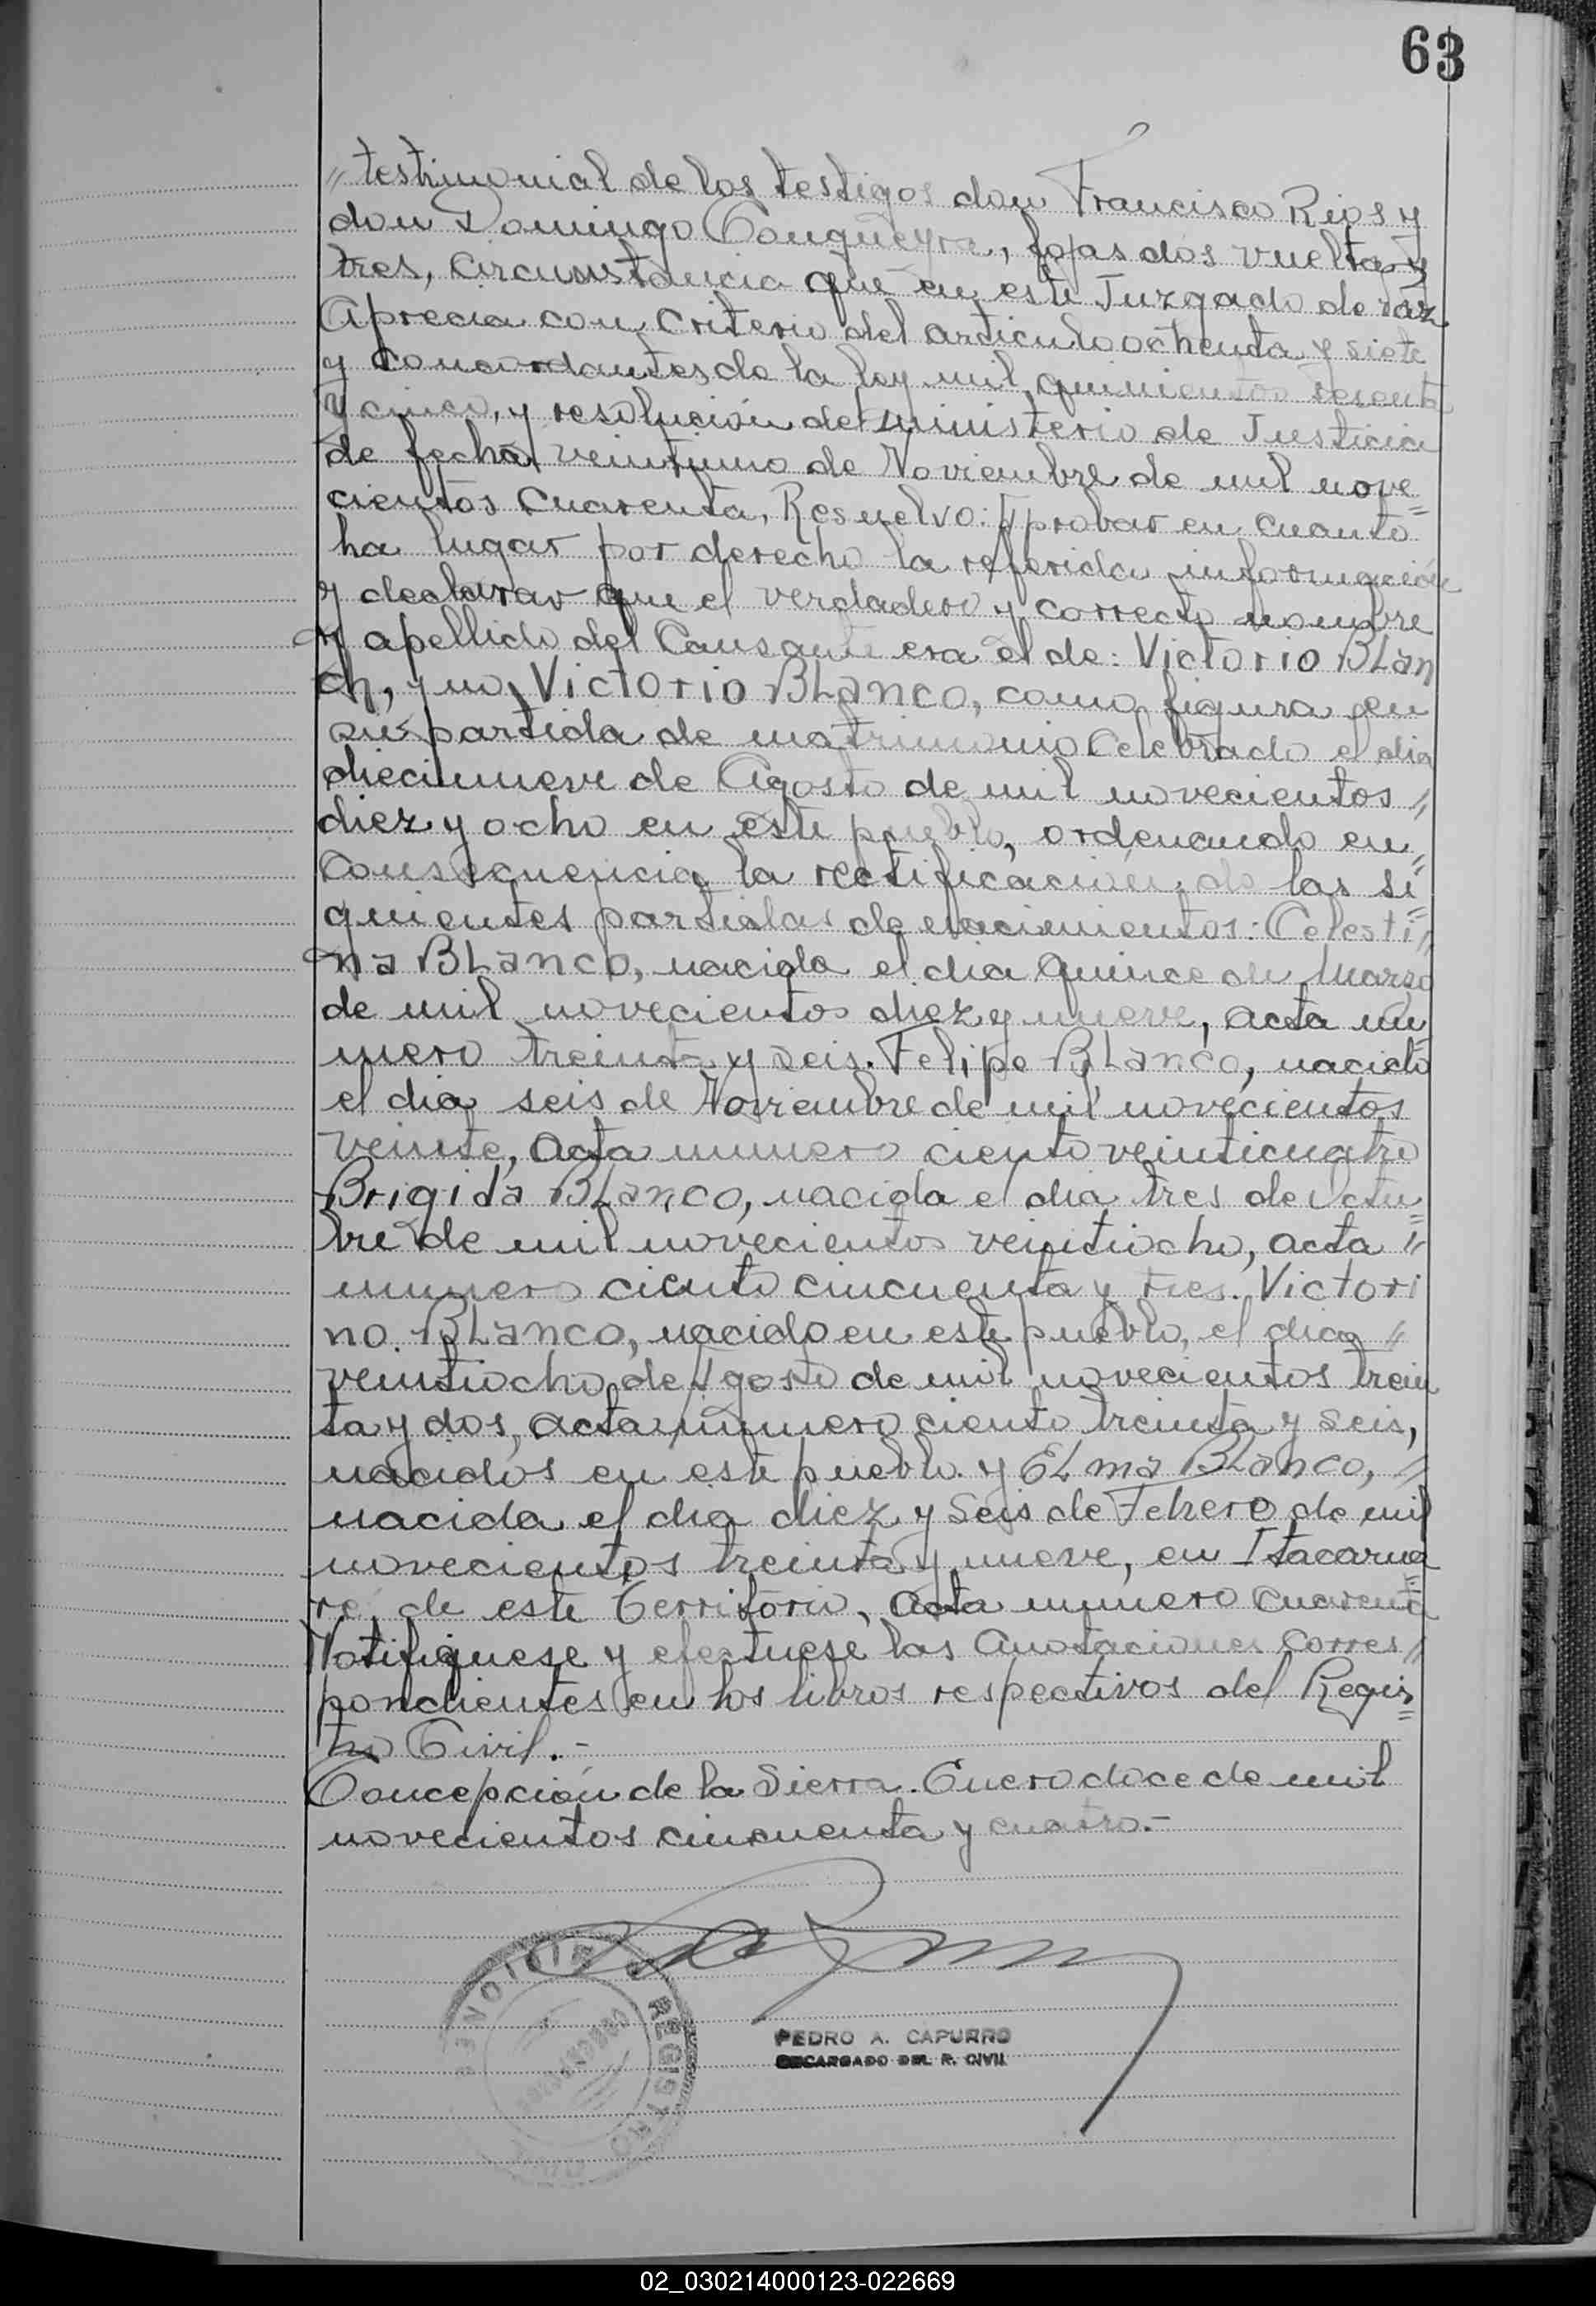 63
"testimonial de los testigos don Francisco Rios y
don Domingo Congueyra, fojas dos vuelta y
tres, circunstancia que en este Juzgado de Paz
Aprecia con Criterio del articulo ochenta y siete
y concordantes de la ley mil quinientos sesenta
y cinco, y resolución del ministerio de Justicia
de fecha veintiuno de Noviembre de mil nove=
cientos Cuarenta, Resuelvo: Aprobar en cuanto
ha lugar por derecho la referida información
y declarar que el verdadero y correcto nombre
y apellido del Causante era el de: Victorio BLan
ch, y no Victorio BLanco, como figura en
su partida de matrimonio Celebrado el dia
diecinueve de Agosto de mil novecientos "
diez y ocho en este pueblo, ordenando en "
Consecuencia la rectificación de las si=
guientes partidas de nacimientos: Celesti"
na BLanco, nacida el dia quince de Marzo
de mil novecientos diez y nueve, acta nu=
mero treinta y seis. Felipe BLanco, nacido
el dia seis de Noviembre de mil novecientos
veinte, acta numero ciento veinticuatro
Brigida BLanco, nacida el dia tres de Octu=
bre de mil novecientos veintiocho, acta "
numero ciento cincuenta y tres. Victori
no BLanco, nacido en este pueblo, el dia "
veintiocho de Agosto de mil novecientos trein
ta y dos, acta numero ciento treinta y seis,
nacidos en este pueblo y ELma BLanco, "
nacida el dia diez y seis de Febrero de mil
novecientos treinta y nueve, en Itacarua=
ré, de este Territorio, acta numero cuarenta
Notifiquese y efectuese las anotaciones corres"
pondientes en los libros respectivos del Regis=
tro Civil.-
Concepción de la Sierra. Enero doce de mil
novecientos cincuenta y cuatro.-
MISIONES REGISTRO
PEDRO A. CAPURRO
ENCARGADO DEL R. CIVIL
02_030214000123-022669